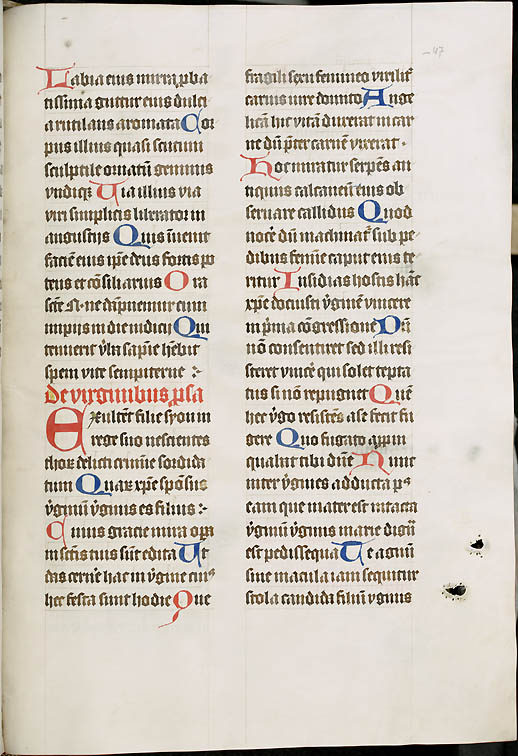 47
Labia eius mirra p̱ba
tissima guttur eius dulci
a rutilans aromata Cor
pus illius quasi scutum
sculptile ornatū gemmis
undiqꝫ Uia illius via
viri simplicis liberator in
angustijs Quis īuenit
faciē eius ip̄e deus fontis po
tens et cōsiliarius Ora
sc̄e N· ne dāpnemur cum
impijs in die iudicij Qui
temerit yl̄n sap̄ie hēbit
spem vite sempiterne :
De virginibus p̱sa
Exultēt filie syon in
rege suo nescientes
thori delicti crimīe sordida
tum Quas xp̄e spōsus
v̄gīnū v̄gīnis es filius :
Cuius gracie mira op̄a
in sc̄is tuis sūt edita Ut
das cernē hac in v̄gīne cui9
hec festa sunt hodie Que
fragili sexu femineo virilit̄
carnis iure domito Ange
licā hic vitā duxerat in car
ne dū p̄ter carnē vixerat ·
Hoc miratur serpēs an
tiquus calcaneū eius ob
seruare callidus Quod
nocē dū machinat̄ sub pe
dibus femīe caput eius te
ritur Insidias hostis hāc
xp̄e docuisti v̄gīnē vincere
in p̄ma cōgressione Dū
nō consentiret sed illi resi
steret vincē qui solet tepta
tus si nō repugnet Quē
hec v̄go resistēs a se fecit fu
gere Quo fugato
qualiit tibi dn̄e Nunc
inter v̄gīnes adducta p9
eam que mater est intacta
v̄gīnū v̄gīnis marie dignā
est pedissequa Te agnū
sine macula iam sequitur
stola candida filiū v̄gīnis